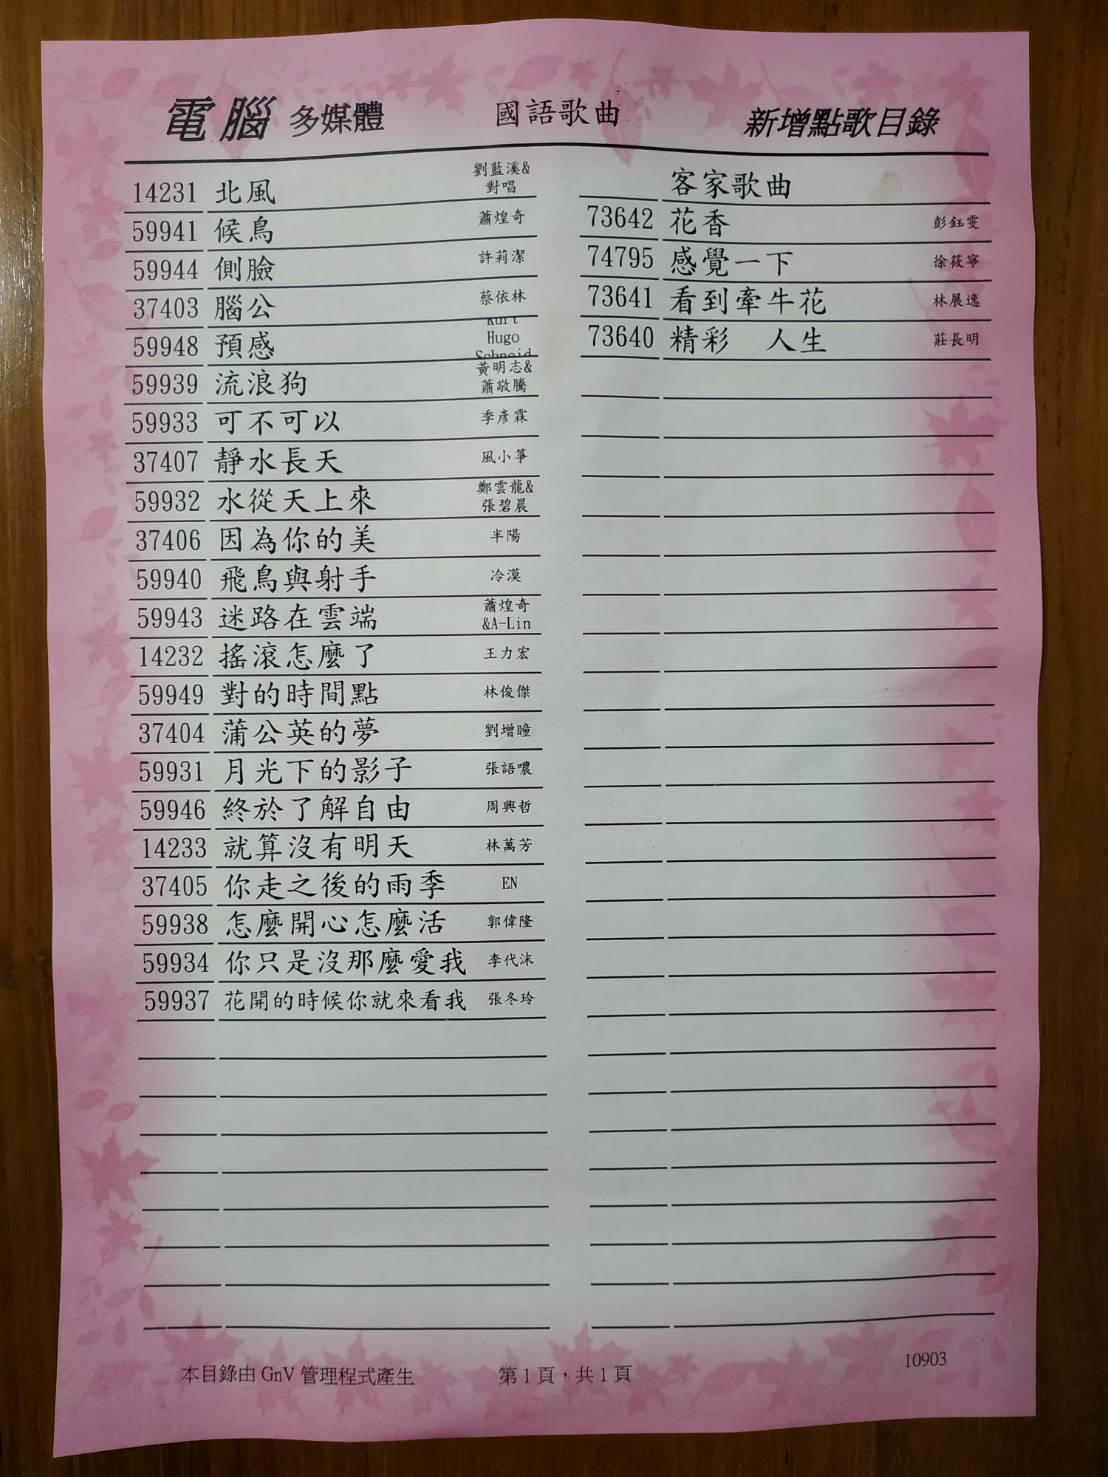 電腦 多媒體 國語歌曲 新增點歌目錄
14231 北風 劉藍溪&對唱
59941 候鳥 蕭煌奇
59944 側臉 許莉潔
37403 腦公 蔡依林
59948 預感 Kurt Hugo Schneid
59939 流浪狗 黃明志&蕭敬騰
59933 可不可以 季彥霖
37407 靜水長天 風小箏
59932 水從天上來 鄭雲龍&張碧晨
37406 因為你的美 半陽
59940 飛鳥與射手 冷漠
59943 迷路在雲端 蕭煌奇&A-Lin
14232 搖滾怎麼了 王力宏
59949 對的時間點 林俊傑
37404 蒲公英的夢 劉增瞳
59931 月光下的影子 張語噥
59946 終於了解自由 周興哲
14233 就算沒有明天 林萬芳
37405 你走之後的雨季 EN
59938 怎麼開心怎麼活 郭偉隆
59934 你只是沒那麼愛我 李代沫
59937 花開的時候你就來看我 張冬玲
客家歌曲
73642 花香 彭鈺雯
74795 感覺一下 徐筱寧
73641 看到牽牛花 林展逸
73640 精彩　人生 莊長明
本目錄由 GnV 管理程式產生 第1頁，共1頁 10903